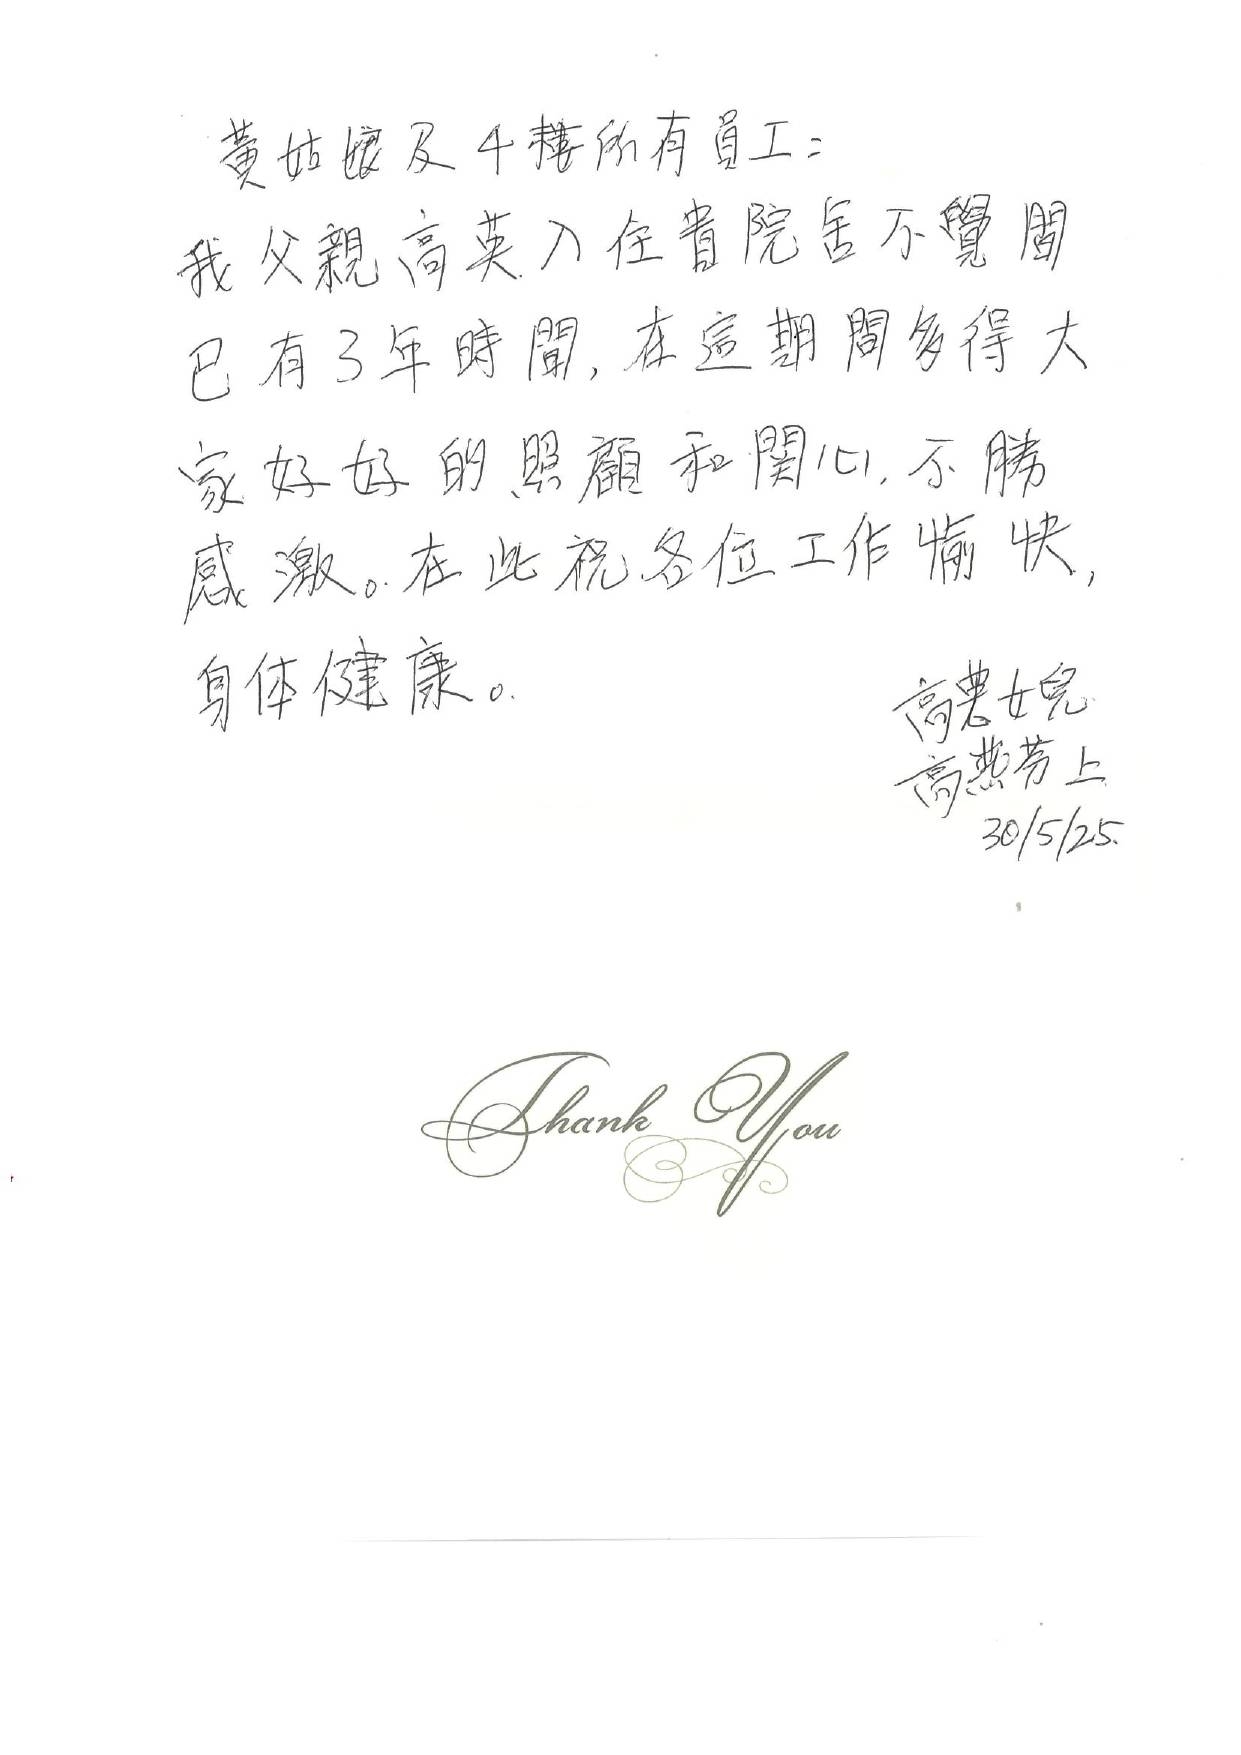 黃姑娘及4樓所有員工：
我父親高英入住貴院舍不覺間
已有3年時間，在這期間多得大
家好好的照顧和関心，不勝
感激。在此祝各位工作愉快，
身体健康。
高英女兒
高燕芳上
30/5/25
Thank You